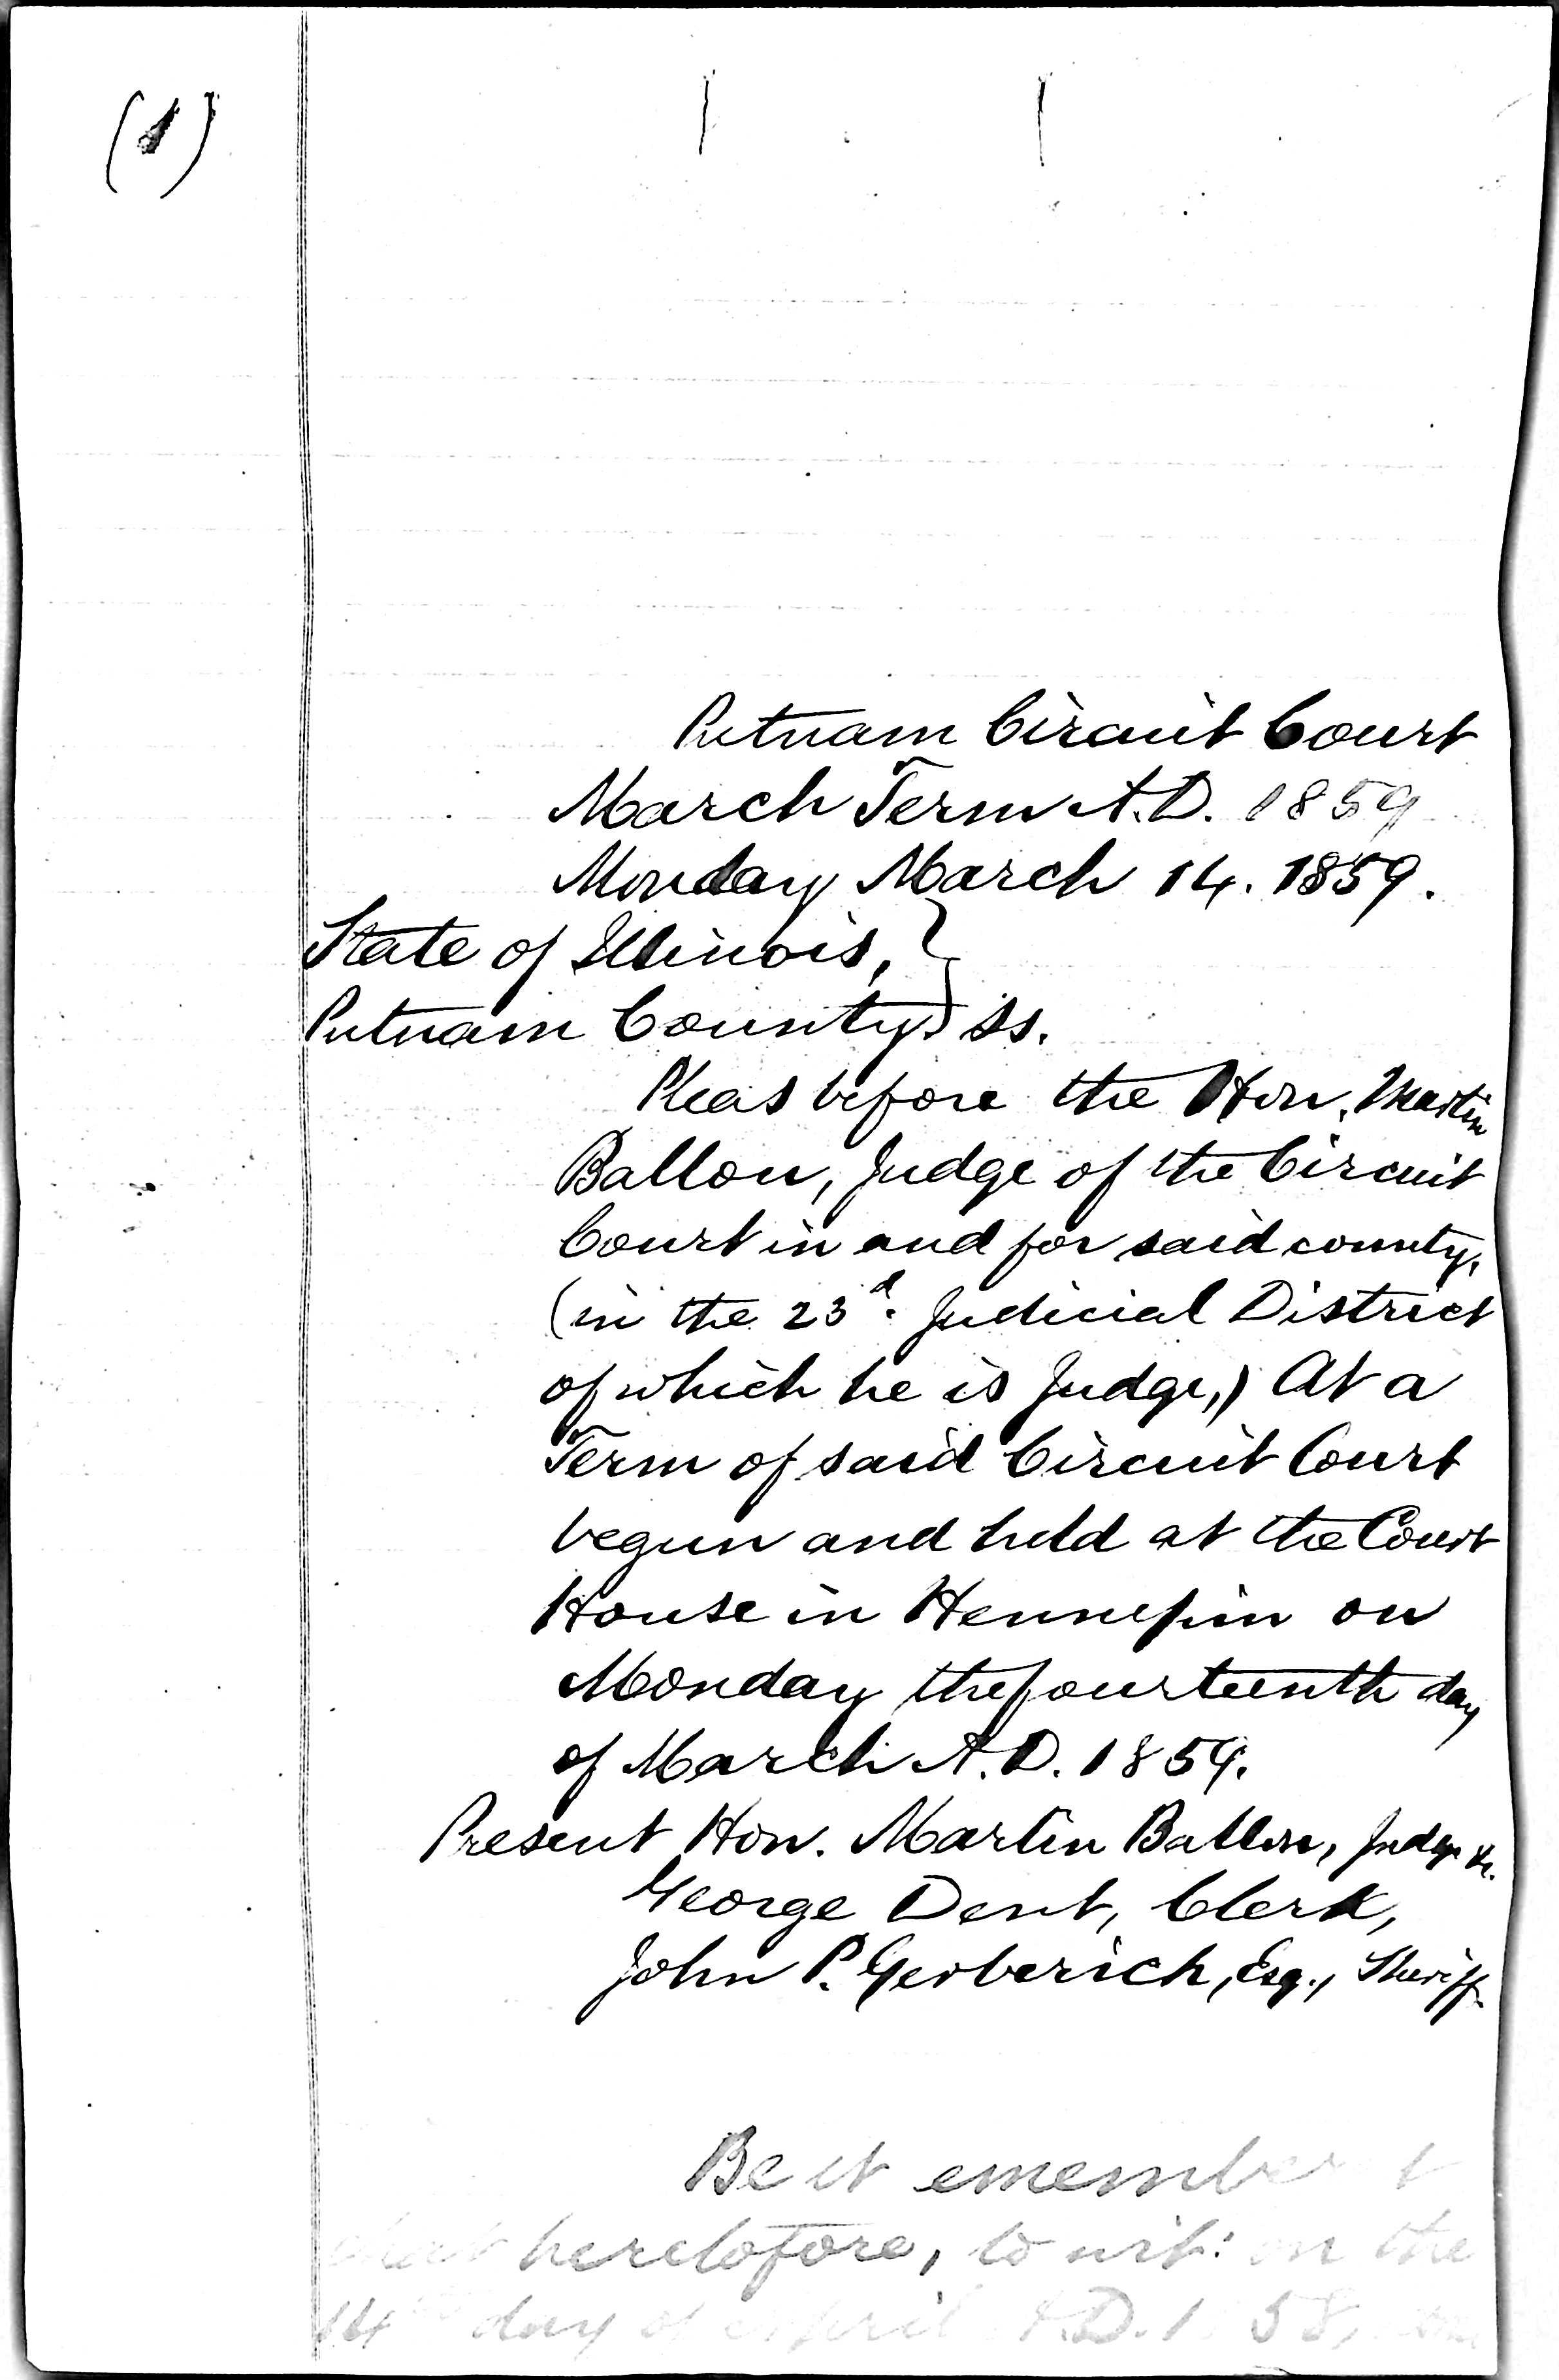 (1)
Putnam Circuit Court
March Term A.D. 1859
Monday March 14. 1859.
State of Illinois, }
Putnam County } ss.
Pleas before the Hon. Martin
Ballou, Judge of the Circuit
Court in and for said county,
(in the 23d. Judicial District
of which he is Judge,) At a
Term of said Circuit Court
begun and held at the Court
House in Hennepin on
Monday the fourteenth day
of March A.D. 1859.
Present Hon. Martin Ballou, Judge &c.
George Dent, Clerk,
John P. Gerberich, Esq., Sheriff
Be it emember
that heretofore, to wit: on the
14th day of April A.D. 1 58,